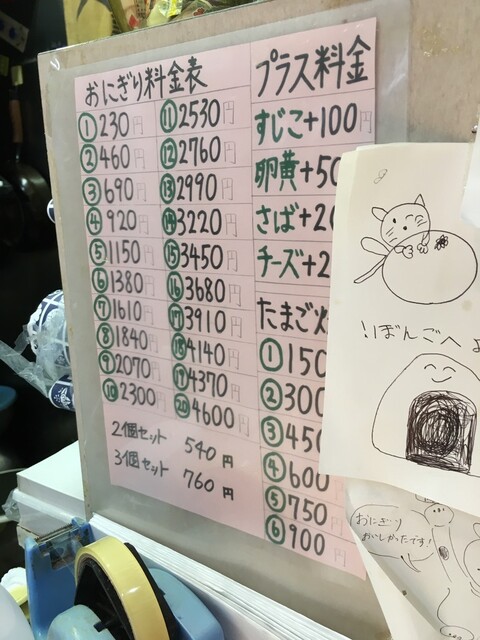 おにぎり料金表
① 230円
② 460円
③ 690円
④ 920円
⑤ 1150円
⑥ 1380円
⑦ 1610円
⑧ 1840円
⑨ 2070円
⑩ 2300円
⑪ 2530円
⑫ 2760円
⑬ 2990円
⑭ 3220円
⑮ 3450円
⑯ 3680円
⑰ 3910円
⑱ 4140円
⑲ 4370円
⑳ 4600円
2個セット 540円
3個セット 760円
プラス料金
すじこ+100円
卵黄+50
さば+2
チーズ+2
たまご
① 150
② 300
③ 450
④ 600
⑤ 750円
⑥ 900円
りぼんごへ
おにぎり
おいしかたです!